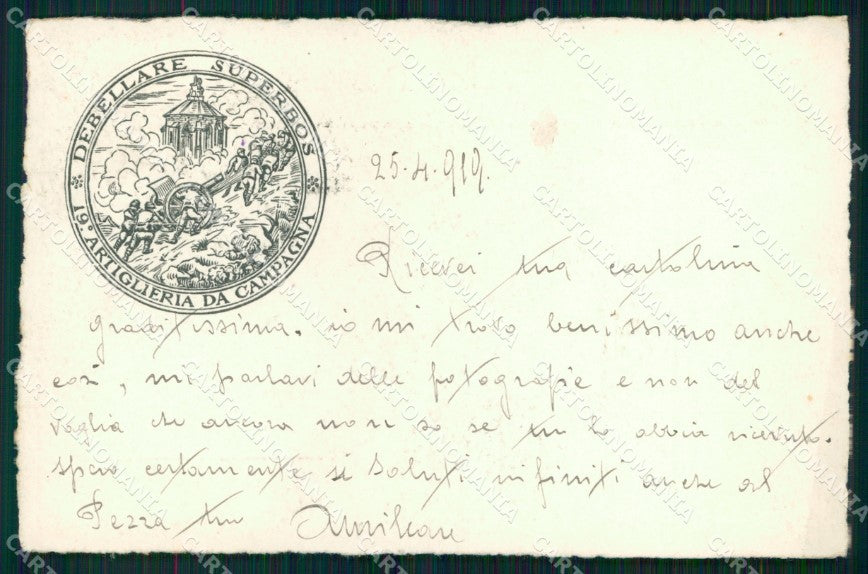 DEBELLARE SUPERBOS
19° ARTIGLIERIA DA CAMPAGNA
25.4.919.
Ricevei tua cartolina
graditissima. io mi trovo benissimo anche
così, mi parlavi delle fotografie e non del
vaglia che ancora non so se tu lo abbia ricevuto.
spero certamente si Saluti infiniti anche al
Pezza tuo Amilcare
CARTOLINOMANIA